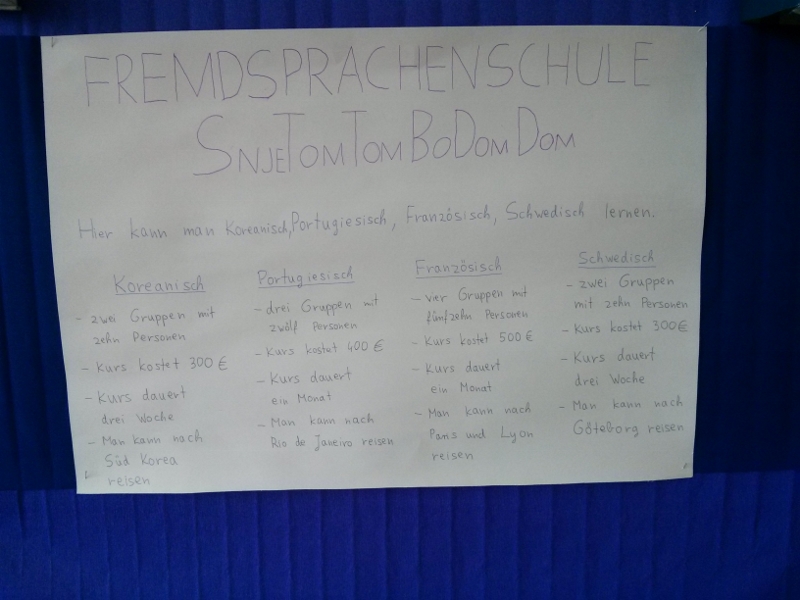 FREMDSPRACHENSCHULE
SNJETOMTOMBODOMDOM
Hier kann man Koreanisch, Portugiesisch, Französisch, Schwedisch lernen.
Koreanisch
- zwei Gruppen mit
zehn Personen
- Kurs kostet 300 €
- Kurs dauert
drei Woche
- Man kann nach
Süd Korea
reisen
Portugiesisch
- drei Gruppen mit
zwölf Personen
- Kurs kostet 400 €
- Kurs dauert
ein Monat
- Man kann nach
Rio de Janeiro reisen
Französisch
- vier Gruppen mit
fünfzehn Personen
- Kurs kostet 500 €
- Kurs dauert
ein Monat
- Man kann nach
Paris und Lyon
reisen
Schwedisch
- zwei Gruppen
mit zehn Personen
- Kurs kostet 300 €
- Kurs dauert
drei Woche
- Man kann nach
Göteborg reisen